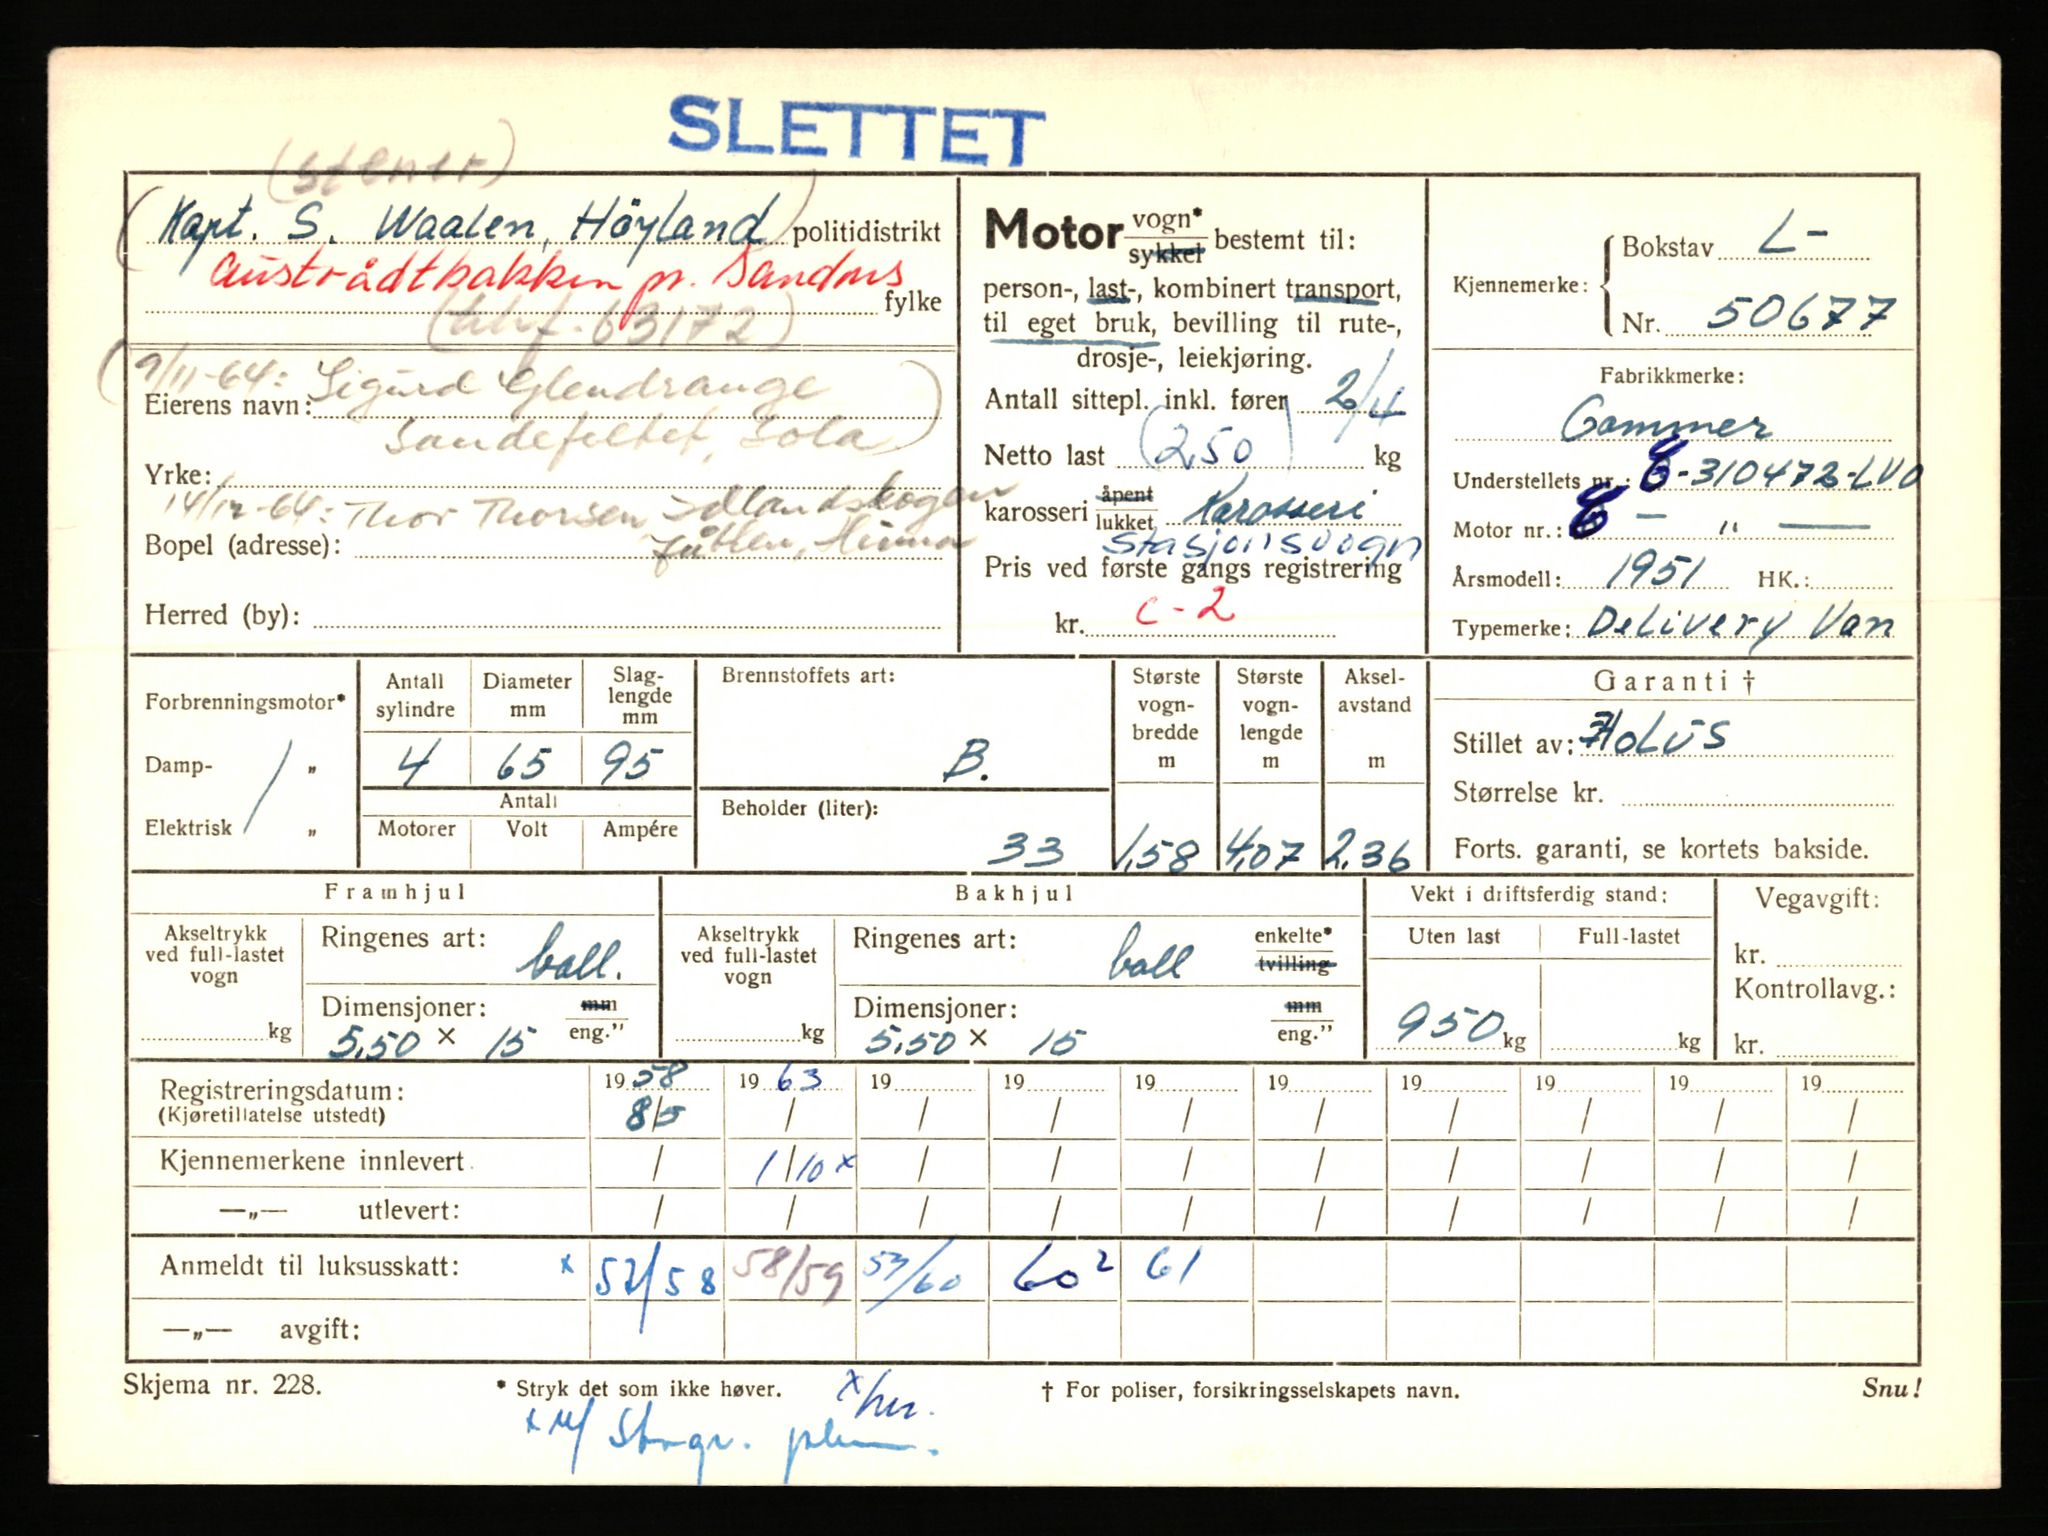 SLETTET
(Stener)
(Kapt. S. Waalen, Höyland) politidistrikt
Austrådtbakken pr. Sandnes fylke
(tlf. 63172)
9/11-64: Sigurd Glendrange
Eierens navn:
Sandefeltet, Sola
Yrke:
14/12-64: Thor Thorsen, Idlandskogen
Bopel (adresse):
Jåtten, Hinna
Herred (by):
Motor vogn* / sykkel bestemt til:
person-, last-, kombinert transport,
til eget bruk, bevilling til rute-,
drosje-, leiekjøring.
Antall sittepl. inkl. fører 2/4
Netto last (250) kg
karosseri åpent / lukket Karosseri
Stasjonsvogn
Pris ved første gangs registrering
kr. C-2
Kjennemerke: Bokstav L-
Nr. 50677
Fabrikkmerke:
Commer
Understellets nr.: C-310472-LVO
Motor nr.: C — " —
Årsmodell: 1951 HK.:
Typemerke: Delivery Van
Forbrenningsmotor*
Damp- „
Elektrisk „
Antall sylindre 4
Diameter mm 65
Slag-lengde mm 95
Antall
Motorer Volt Ampére
Brennstoffets art: B.
Beholder (liter): 33
Største vogn-bredde m 1,58
Største vogn-lengde m 4,07
Aksel-avstand m 2,36
Garanti †
Stillet av: Polus
Størrelse kr.
Forts. garanti, se kortets bakside.
Framhjul
Akseltrykk ved full-lastet vogn kg
Ringenes art: ball.
Dimensjoner: mm / eng."
5,50 x 15
Bakhjul
Akseltrykk ved full-lastet vogn kg
Ringenes art: ball enkelte* / tvilling
Dimensjoner: mm / eng."
5,50 x 15
Vekt i driftsferdig stand:
Uten last Full-lastet
950 kg kg
Vegavgift:
kr.
Kontrollavg.:
kr.
Registreringsdatum: 1958 1963 19 19 19 19 19 19 19 19
(Kjøretillatelse utstedt) 8/5 / / / / / / / / /
Kjennemerkene innlevert / 1/10 x / / / / / / / /
—„— utlevert: / / / / / / / / / /
Anmeldt til luksusskatt: x 57/58 58/59 59/60 60² 61
—„— avgift:
Skjema nr. 228. * Stryk det som ikke høver. † For poliser, forsikringsselskapets navn. Snu!